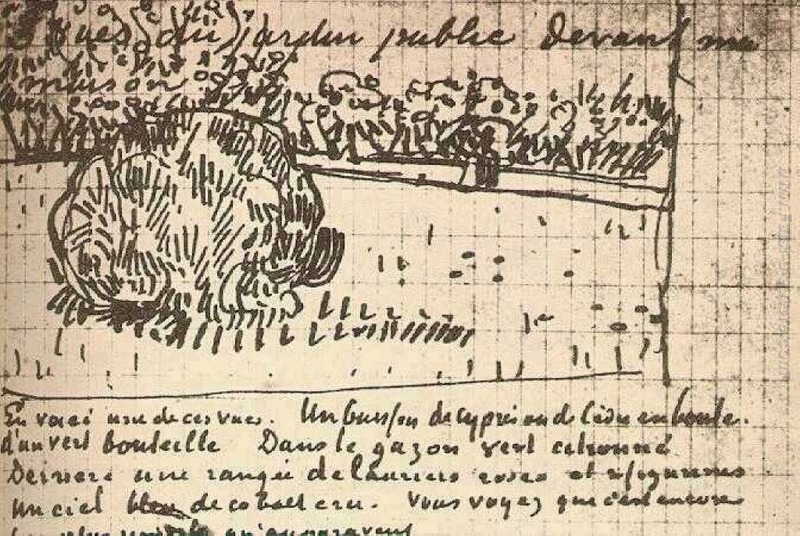 vues du jardin public devant ma
maison
En voici une de ces vues. Un buisson de cyprès en boule.
d'un vert bouteille Dans le gazon vert citronné
Derrière une rangée de lauriers roses et
un ciel bleu de cobalt cru. Vous voyez que c'est encore
plus